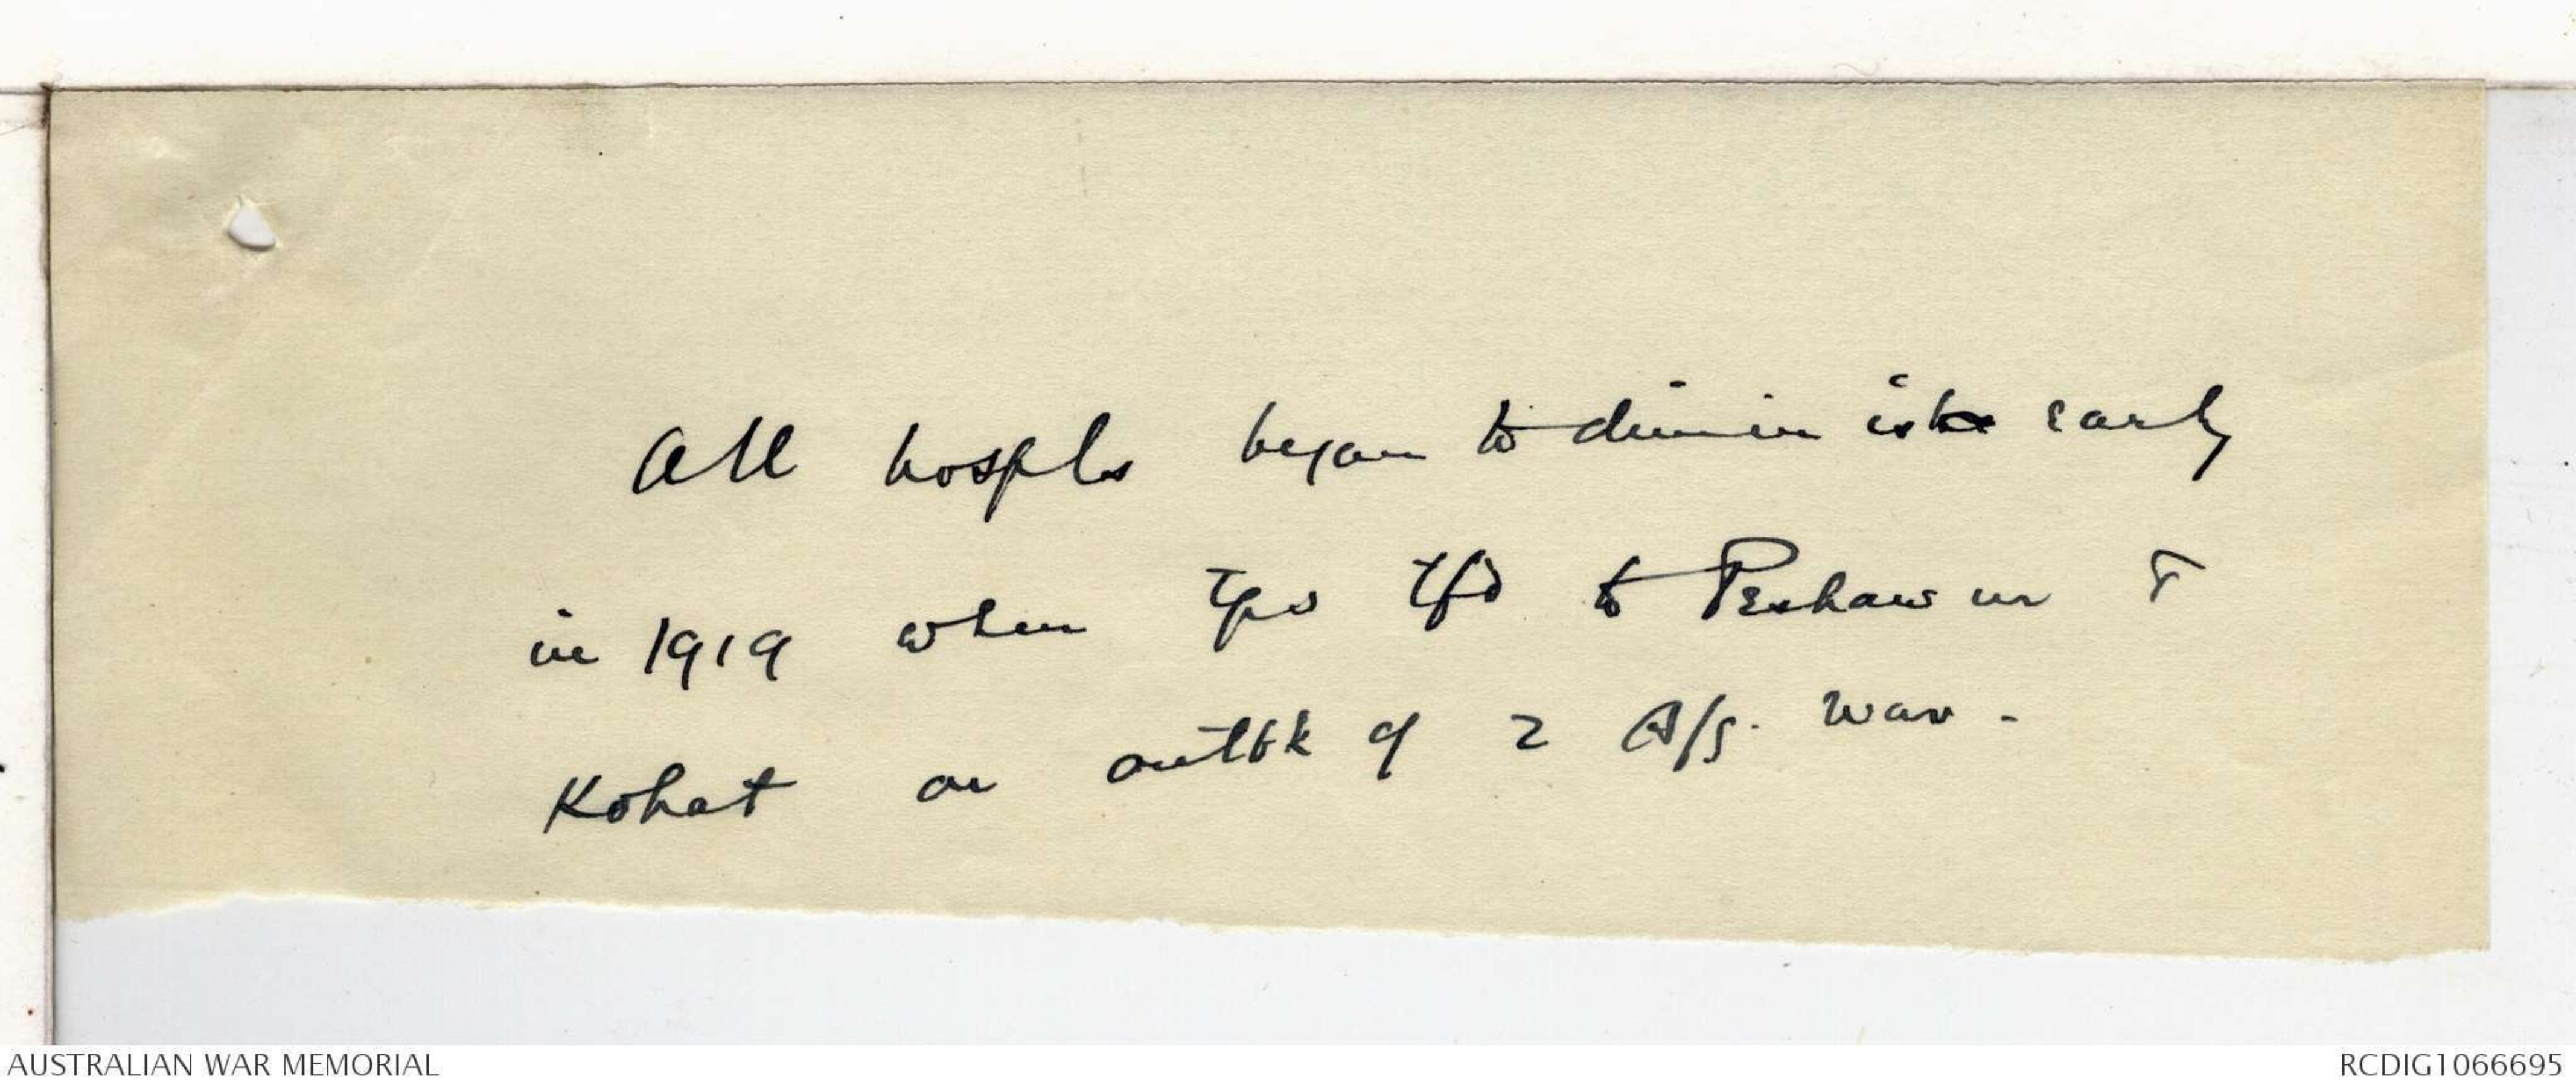 All hospls began to diminish early
in 1919 when tps tfd to Peshawur &
Kohat on outbk of 2 Afg. war.
AUSTRALIAN WAR MEMORIAL
RCDIG1066695